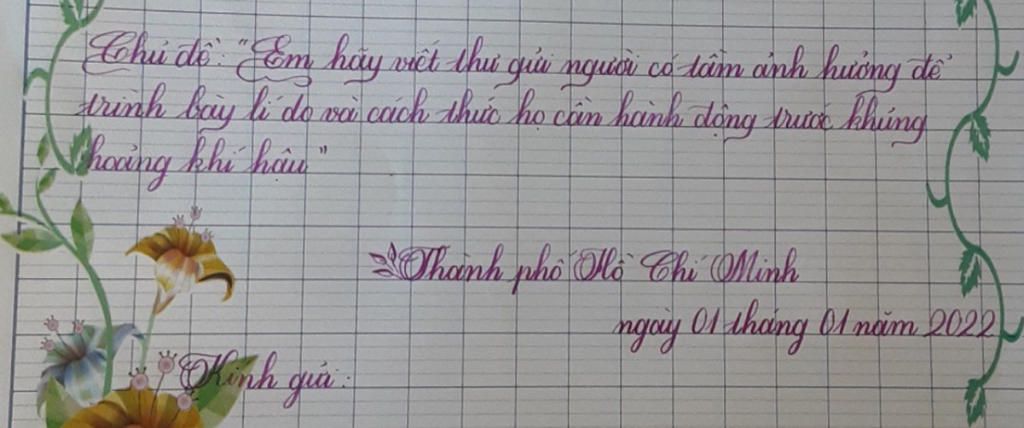 Chủ đề: "Em hãy viết thư gửi người có tầm ảnh hưởng để
trình bày lí do và cách thức họ cần hành động trước khủng
hoảng khí hậu"
Thành phố Hồ Chí Minh
ngày 01 tháng 01 năm 2022
Kính gửi: